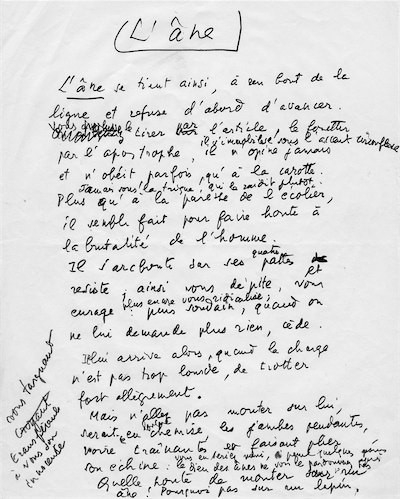 L'âne
L'âne se tient ainsi, à un bout de la
ligne et refuse d'abord d'avancer.
tirer par l'article, le fouetter
il s'immobilise sous l'accent circonflexe
par l'apostrophe, il n'opine jamais
et n'obéit parfois qu'à la carotte.
Jamais sous la trique, qui le raidit plutôt.
Plus qu'à la paresse de l'écolier,
il semble fait pour faire honte à
la brutalité de l'homme.
quatre
Il s'arcboute sur ses pattes et
résiste, ainsi vous dépite, vous
plus encore vous ridiculise,
enrage; plus soudain, quand on
ne lui demande plus rien, cède.
Il lui arrive alors, quand la charge
n'est pas trop lourde, de trotter
fort allègrement.
Mais n'allez pas monter sur lui,
en chemise les jambes pendantes,
voire traînantes et faisant plier
vous seriez, puni,
son échine: le dieu des ânes ne vous le pardonnerait
Quelle honte de monter sur un
âne! Pourquoi pas sur un lapin,
vous targuant
à vous son